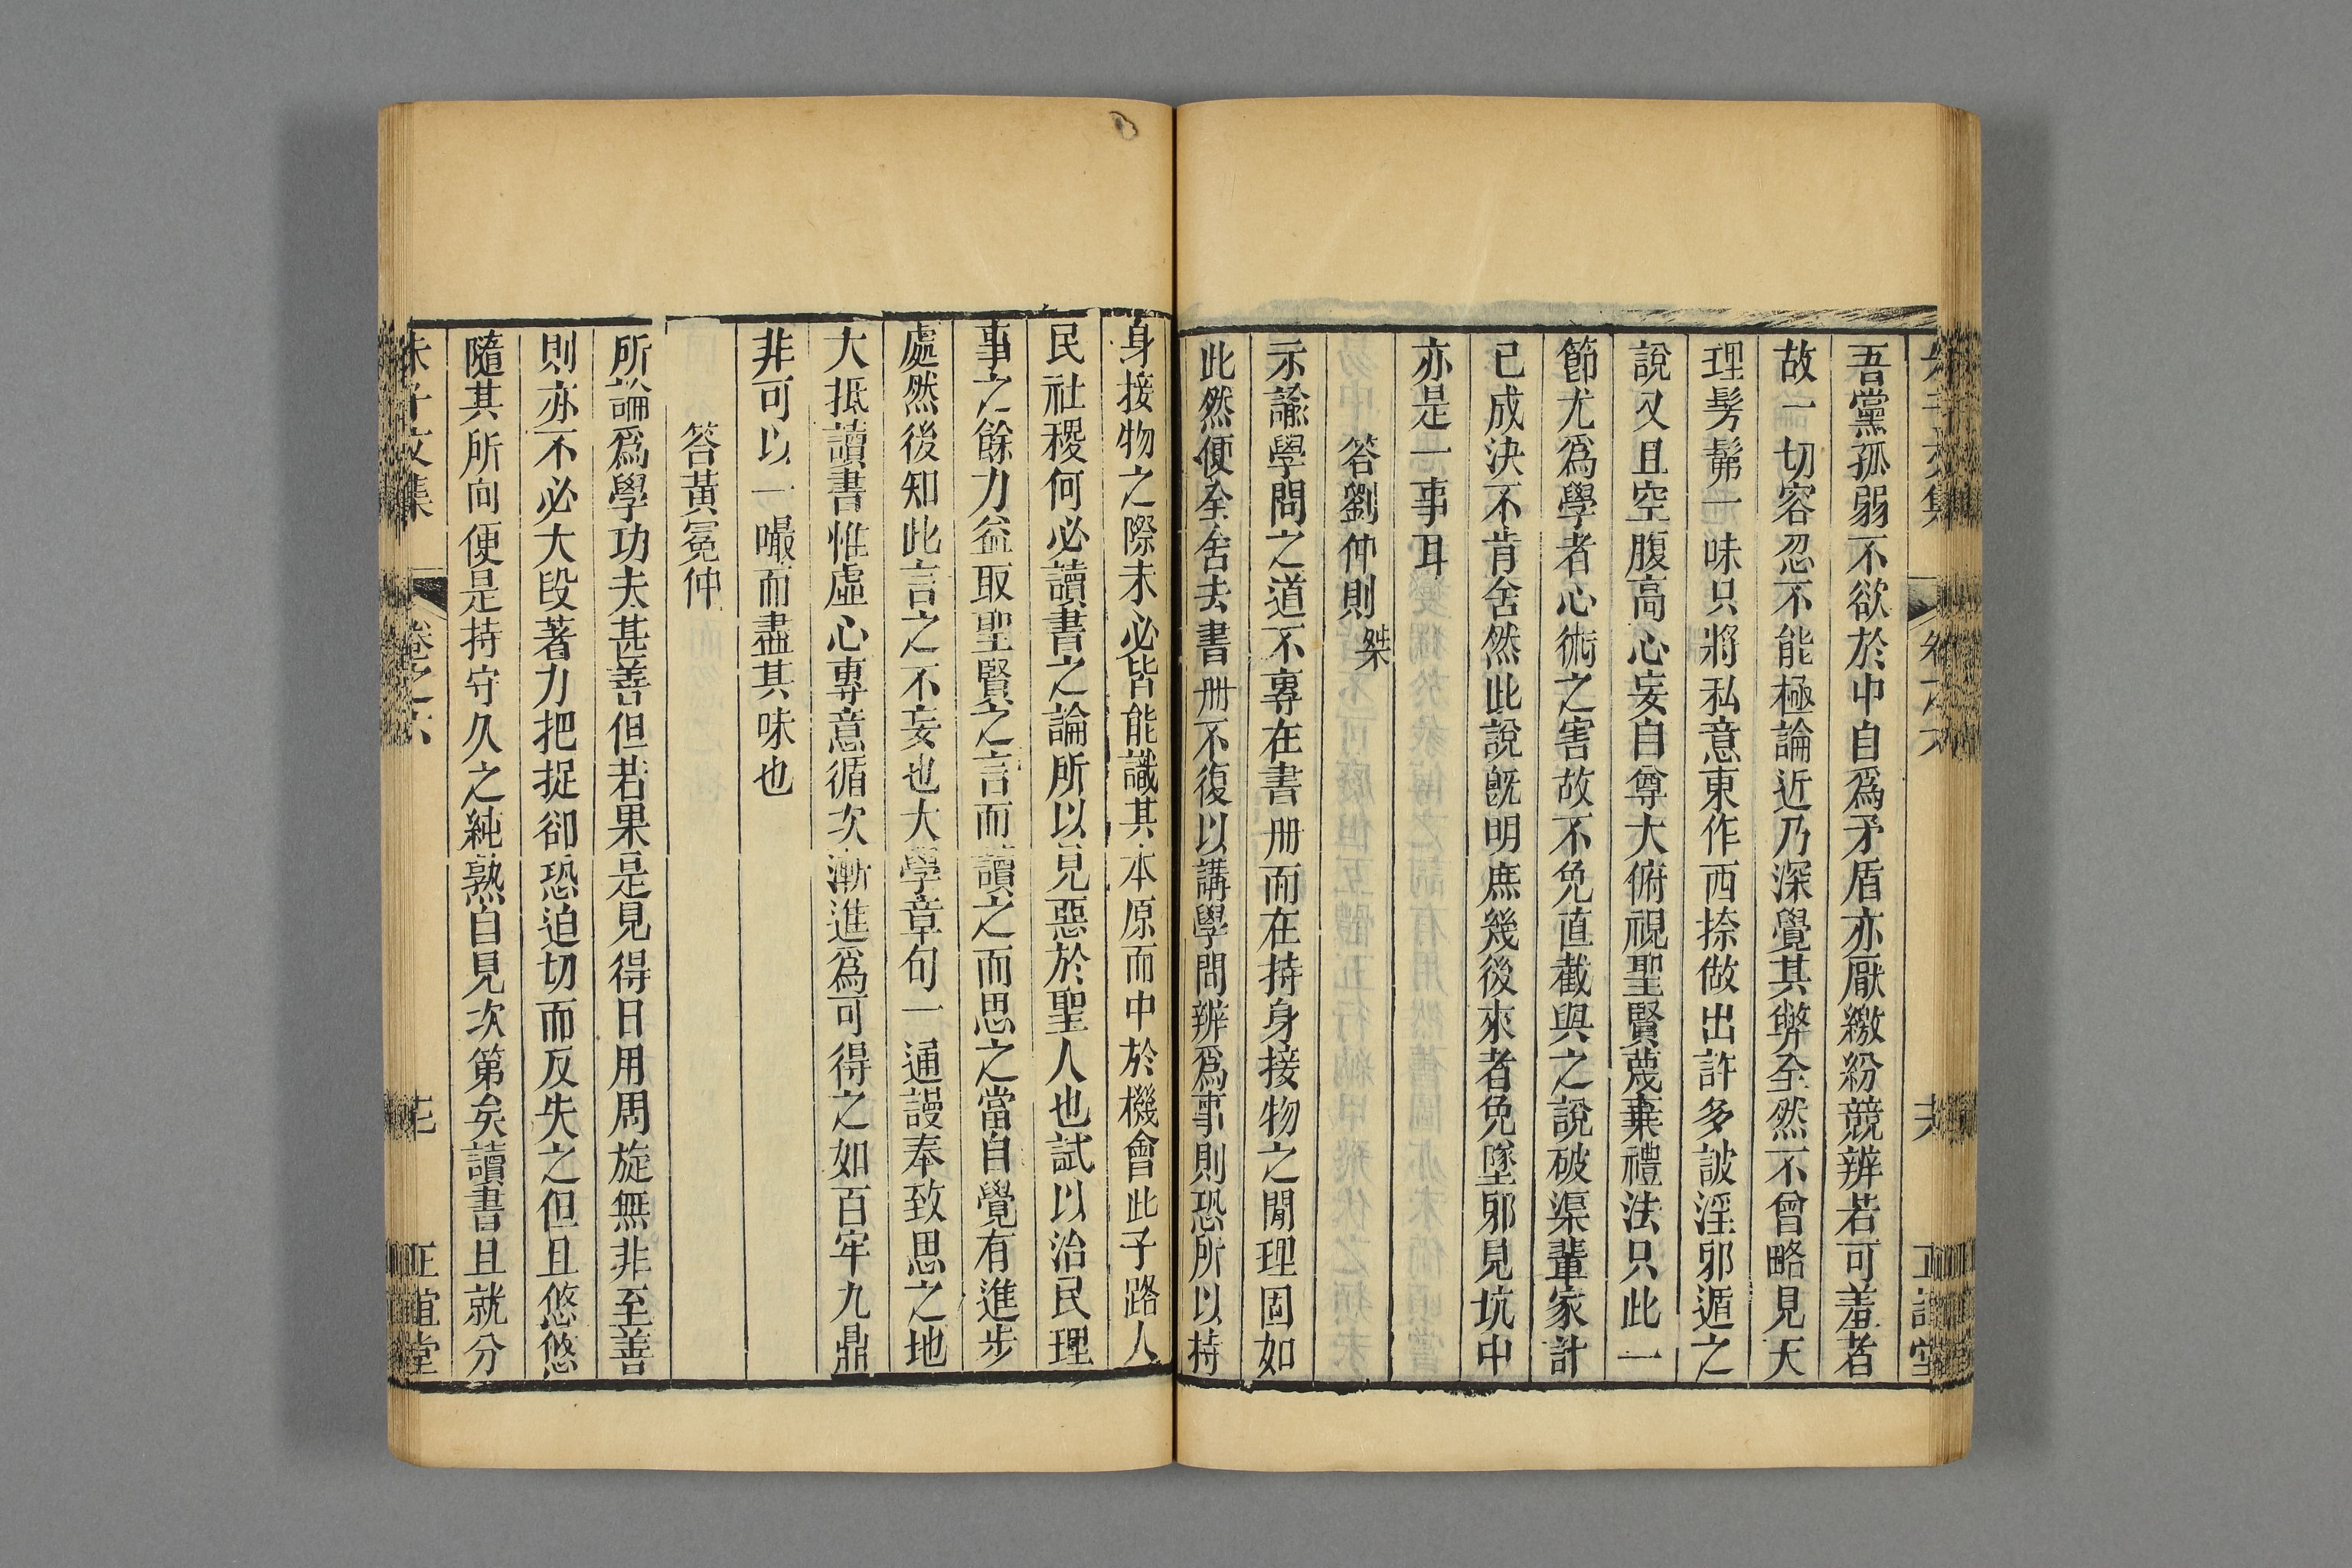 吾黨孤弱不欲於中自爲矛盾亦厭繳紛競辨若可羞者
故一切容忍不能極論近乃深覺其弊全然不曾略見天
理髣髴一味只將私意東作西捺做出許多詖淫邪遁之
說又且空腹高心妄自尊大俯視聖賢蔑棄禮法只此一
節尤爲學者心術之害故不免直截與之說破渠輩家計
已成決不肯舍然此說旣明庶幾後來者免墜邪見坑中
亦是一事耳
答劉仲則 榘
示諭學問之道不專在書冊而在持身接物之閒理固如
此然便全舍去書冊不復以講學問辨爲事則恐所以持
身接物之際未必皆能識其本原而中於機會此子路人
民社稷何必讀書之論所以見惡於聖人也試以治民理
事之餘力益取聖賢之言而讀之而思之當自覺有進步
處然後知此言之不妄也大學章句一通謾奉致思之地
大抵讀書惟虛心專意循次漸進爲可得之如百牢九鼎
非可以一嘬而盡其味也
答黃冕仲
所論爲學功夫甚善但若果是見得日用周旋無非至善
則亦不必大段著力把捉卻恐迫切而反失之但且悠悠
隨其所向便是持守久之純熟自見次第矣讀書且就分
朱子文集 卷之六 正誼堂